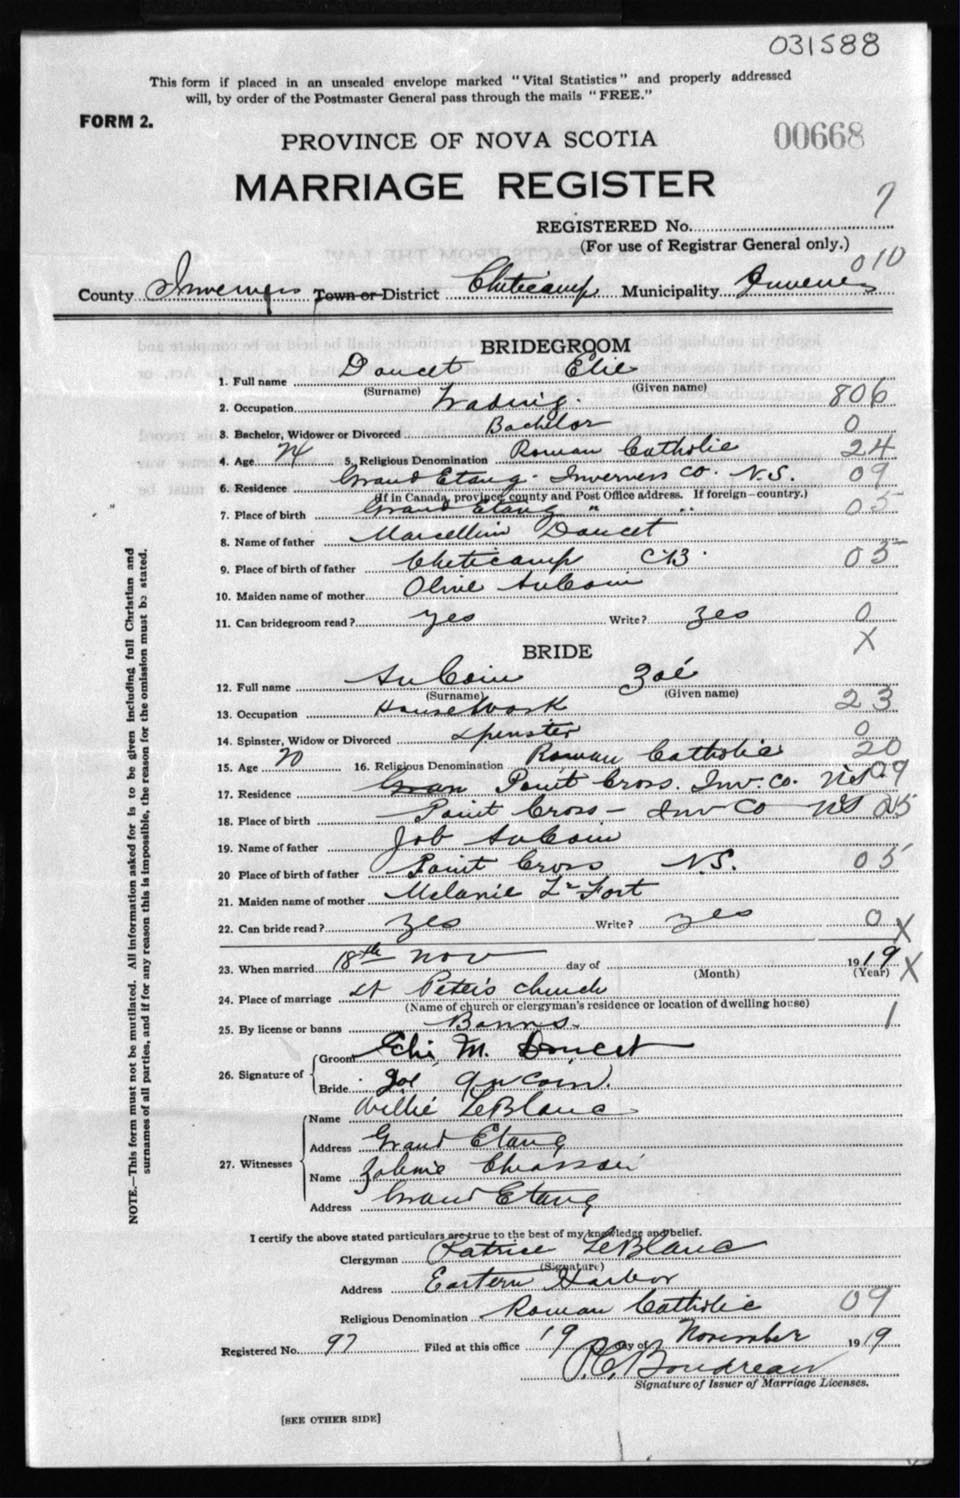 031588
This form if placed in an unsealed envelope marked "Vital Statistics" and properly addressed
will, by order of the Postmaster General pass through the mails "FREE."
FORM 2.
PROVINCE OF NOVA SCOTIA
00668
MARRIAGE REGISTER
7
REGISTERED No.
(For use of Registrar General only.)
010
County Inverness Town or District Cheticamp Municipality Inverness
BRIDEGROOM
1. Full name Doucet Elie
(Surname) (Given name)
2. Occupation Trading. 806
3. Bachelor, Widower or Divorced Bachelor 0
4. Age 24 5. Religious Denomination Roman Catholic 24
6. Residence Grand Etang - Inverness Co. N.S. 09
(If in Canada, province, county and Post Office address. If foreign—country.)
7. Place of birth Grand Etang " " 05
8. Name of father Marcellin Doucet
9. Place of birth of father Cheticamp C.B. 05
10. Maiden name of mother Olive AuCoin
11. Can bridegroom read? yes Write? yes 0
X
BRIDE
12. Full name AuCoin Zoé
(Surname) (Given name)
13. Occupation Housework 23
14. Spinster, Widow or Divorced Spinster 0
15. Age 20 16. Religious Denomination Roman Catholic 20
17. Residence Point Cross. Inv. Co. N.S. 09
18. Place of birth Point Cross - Inv Co NS 05
19. Name of father Job AuCoin
20 Place of birth of father Point Cross N.S. 05
21. Maiden name of mother Melanie LeFort
22. Can bride read? yes Write? yes 0 X
23. When married 18th Nov day of 1919 X
(Month) (Year)
24. Place of marriage St Peter's church
(Name of church or clergyman's residence or location of dwelling house)
25. By license or banns Banns. 1
26. Signature of
Groom Elie M. Doucet
Bride Zoe Aucoin.
27. Witnesses
Name Willie LeBlanc
Address Grand Etang
Name Johnie Chiasson
Address Grand Etang
I certify the above stated particulars are true to the best of my knowledge and belief.
Clergyman Patrice LeBlanc
(Signature)
Address Eastern Harbor
Religious Denomination Roman Catholic 09
Registered No. 97 Filed at this office 19 day of November 1919
P.C. Boudreau
Signature of Issuer of Marriage Licenses.
[SEE OTHER SIDE]
NOTE.—This form must not be mutilated. All information asked for is to be given including full Christian and
surnames of all parties, and if for any reason this is impossible, the reason for the omission must be stated.